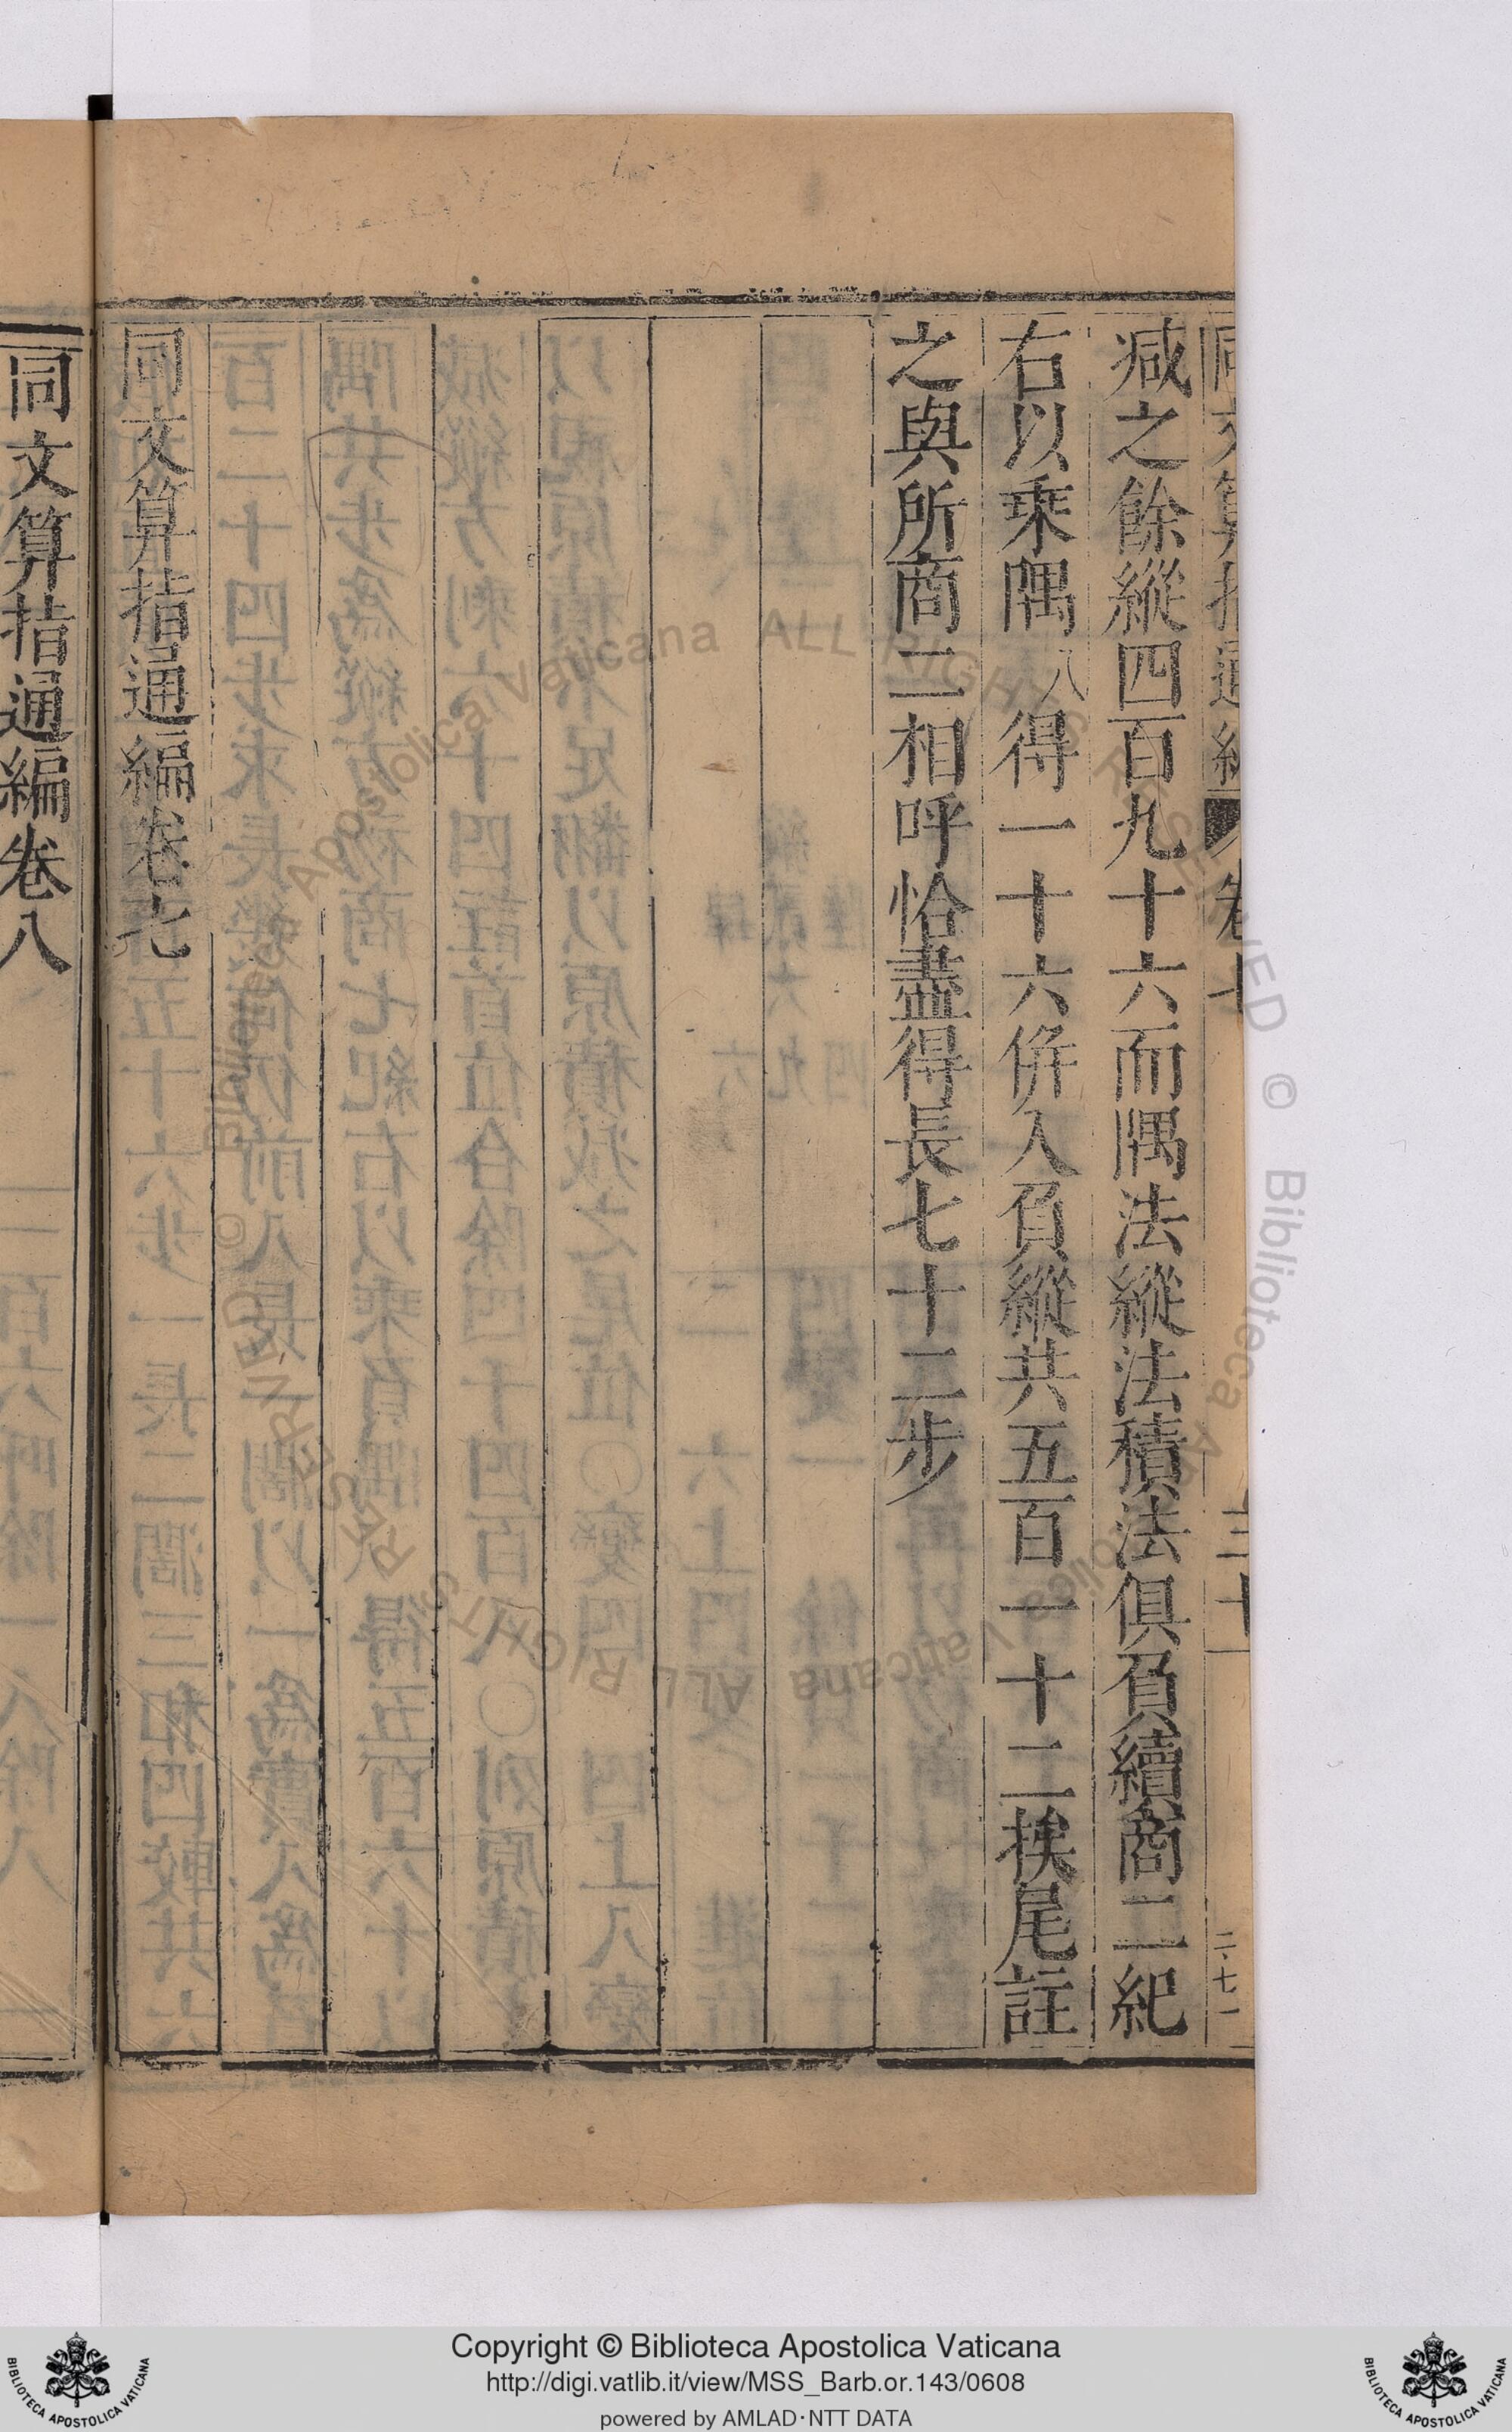 減之餘縱四百九十六而隅法縱法積法俱負續商二紀
右以乘隅八得一十六倂入負縱共五百一十二挨尾註
之與所商二相呼恰盡得長七十二步
同文算指通編卷七
同文算指通編卷八
三十
二·七一
Copyright © Biblioteca Apostolica Vaticana
http://digi.vatlib.it/view/MSS_Barb.or.143/0608
powered by AMLAD·NTT DATA
BIBLIOTECA APOSTOLICA VATICANA
BIBLIOTECA APOSTOLICA VATICANA